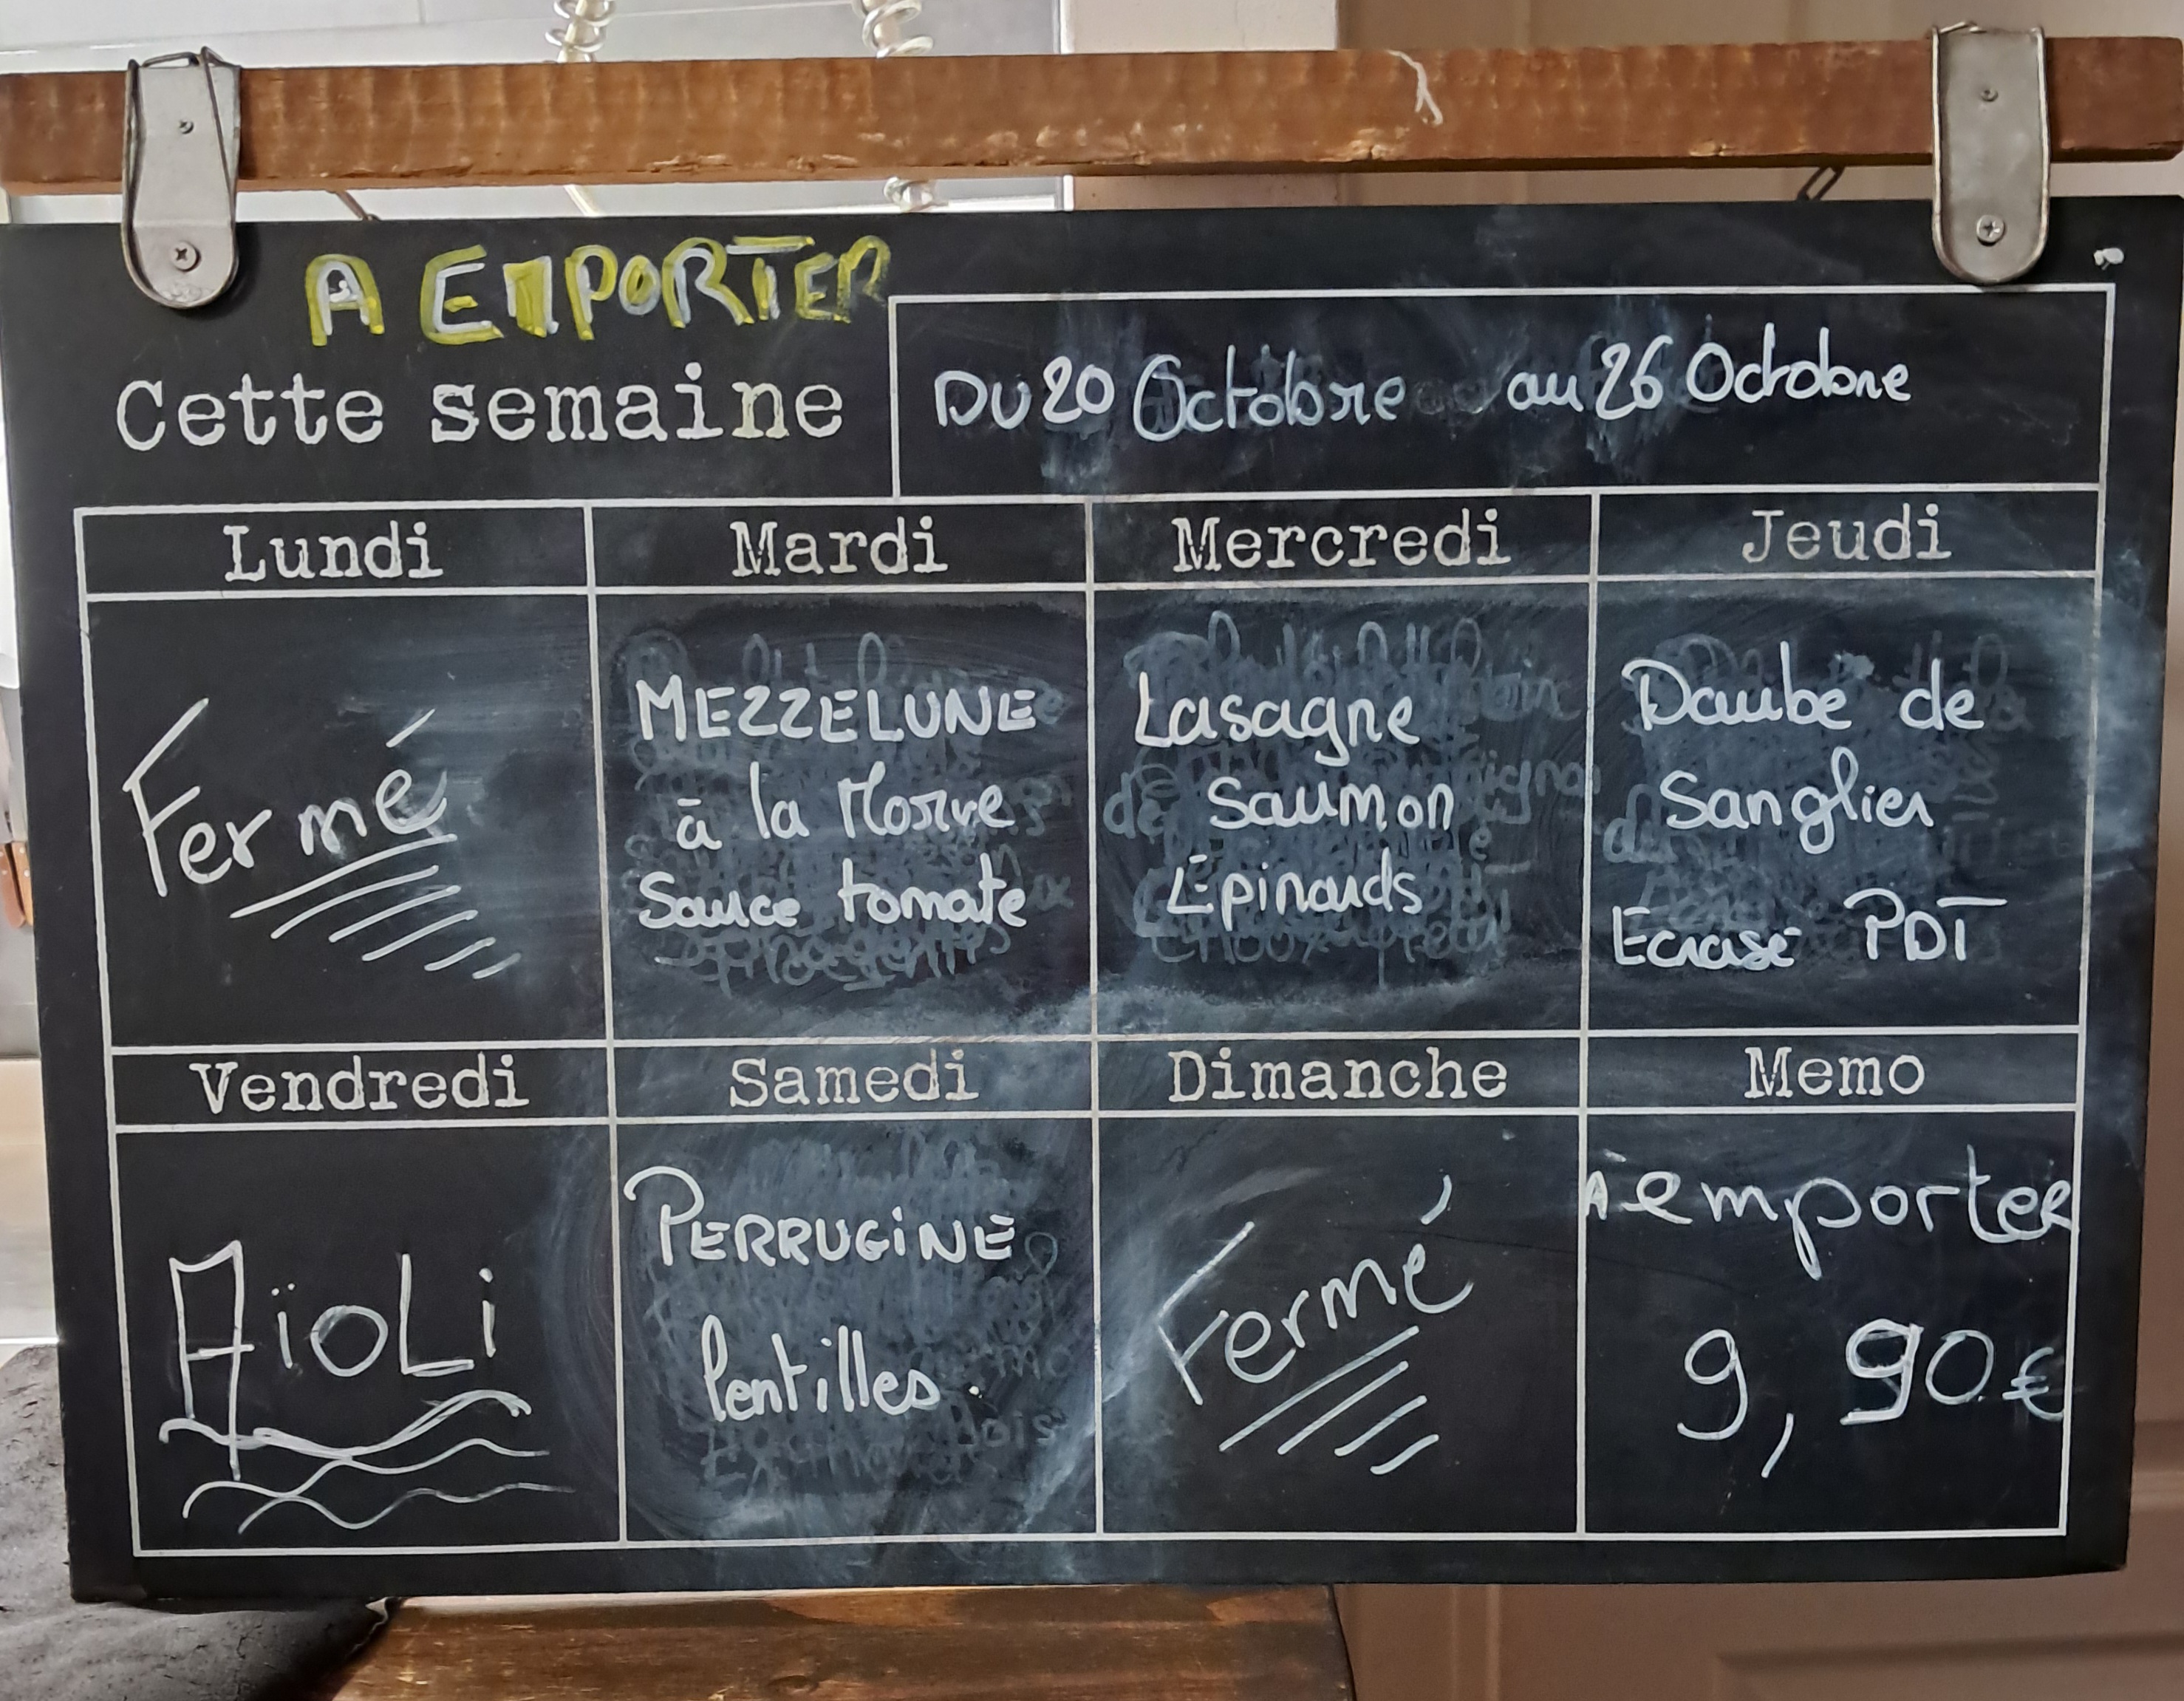 A EMPORTER
Cette semaine
DU 20 Octobre au 26 Octobre
Lundi
Mardi
Mercredi
Jeudi
Fermé
MEZZELUNE
à la Morve
Sauce tomate
Lasagne
Saumon
Epinards
Daube de
Sanglier
Ecrasé PDT
Vendredi
Samedi
Dimanche
Memo
AïoLi
PERRUGiNE
lentilles
Fermé
A emporter
9,90€